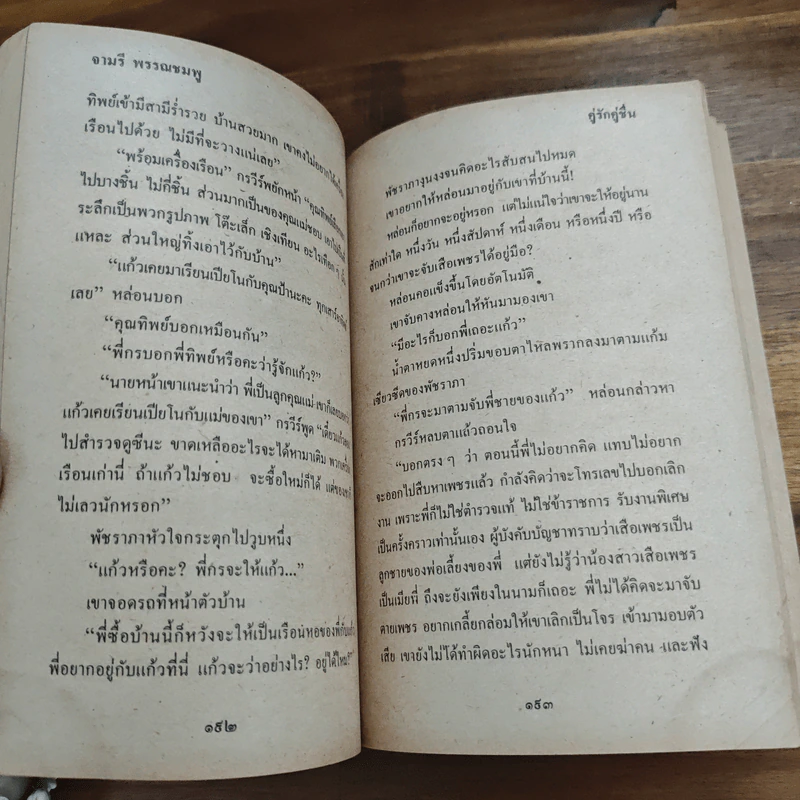 จามรี พรรณชมพู
ทิพย์เข้ามีสามีร่ำรวย บ้านสวยมาก เขาคงไม่อยากได้เครื่อง
เรือนไปด้วย ไม่มีที่จะวางแน่เลย”
“พร้อมเครื่องเรือน” กรวีร์พยักหน้า “คุณทิพย์
ไปบางชิ้น ไม่กี่ชิ้น ส่วนมากเป็นของคุณแม่ชอบ
ระลึกเป็นพวกรูปภาพ โต๊ะเล็ก เชิงเทียน อะไร
แหละ ส่วนใหญ่ทิ้งเอาไว้กับบ้าน”
“แก้วเคยมาเรียนเปียโนกับคุณป้านะคะ
เลย” หล่อนบอก
“คุณทิพย์บอกเหมือนกัน”
“พี่กรบอกพี่ทิพย์หรือคะว่ารู้จักแก้ว?”
“นายหน้าเขาแนะนำว่า พี่เป็นลูกคุณแม่
แก้วเคยเรียนเปียโนกับแม่ของเขา” กรวีร์พูด
ไปสำรวจดูซีนะ ขาดเหลืออะไรจะได้หามาเติม
เรือนเก่านี่ ถ้าแก้วไม่ชอบ จะซื้อใหม่ก็ได้
ไม่เลวนักหรอก”
พัชราภาหัวใจกระตุกไปวูบหนึ่ง
“แก้วหรือคะ? พี่กรจะให้แก้ว...”
เขาจอดรถที่หน้าตัวบ้าน
“พี่ซื้อบ้านนี้ก็หวังจะให้เป็นเรือนหอของพี่กับ
พี่อยากอยู่กับแก้วที่นี่ แก้วจะว่าอย่างไร? อยู่ได้ไหม?”
๑๙๒
คู่รักคู่ชื่น
พัชราภางุนงงจนคิดอะไรสับสนไปหมด
เขาอยากให้หล่อนมาอยู่กับเขาที่บ้านนี้!
หล่อนก็อยากจะอยู่หรอก แต่ไม่แน่ใจว่าเขาจะให้อยู่นาน
สักเท่าใด หนึ่งวัน หนึ่งสัปดาห์ หนึ่งเดือน หรือหนึ่งปี หรือ
จนกว่าเขาจะจับเสือเพชรได้อยู่มือ?
หล่อนคอแข็งขึ้นโดยอัตโนมัติ
เขาจับคางหล่อนให้หันมามองเขา
“มีอะไรก็บอกพี่เถอะแก้ว”
น้ำตาหยดหนึ่งปริ่มขอบตาไหลพรากลงมาตามแก้ม
เซียวซีดของพัชราภา
“พี่กรจะมาตามจับพี่ชายของแก้ว” หล่อนกล่าวหา
กรวีร์หลบตาแล้วถอนใจ
“บอกตรง ๆ ว่า ตอนนี้พี่ไม่อยากคิด แทบไม่อยาก
จะออกไปสืบหาเพชรแล้ว กำลังคิดว่าจะโทรเลขไปบอกเลิก
งาน เพราะพี่ก็ไม่ใช่ตำรวจแท้ ไม่ใช่ข้าราชการ รับงานพิเศษ
เป็นครั้งคราวเท่านั้นเอง ผู้บังคับบัญชาทราบว่าเสือเพชรเป็น
ลูกชายของพ่อเลี้ยงของพี่ แต่ยังไม่รู้ว่าน้องสาวเสือเพชร
เป็นเมียพี่ ถึงจะยังเพียงในนามก็เถอะ พี่ไม่ได้คิดจะมาจับ
ตายเพชร อยากเกลี้ยกล่อมให้เขาเลิกเป็นโจร เข้ามามอบตัว
เสีย เขายังไม่ได้ทำผิดอะไรนักหนา ไม่เคยฆ่าคน และฟัง
๑๙๓